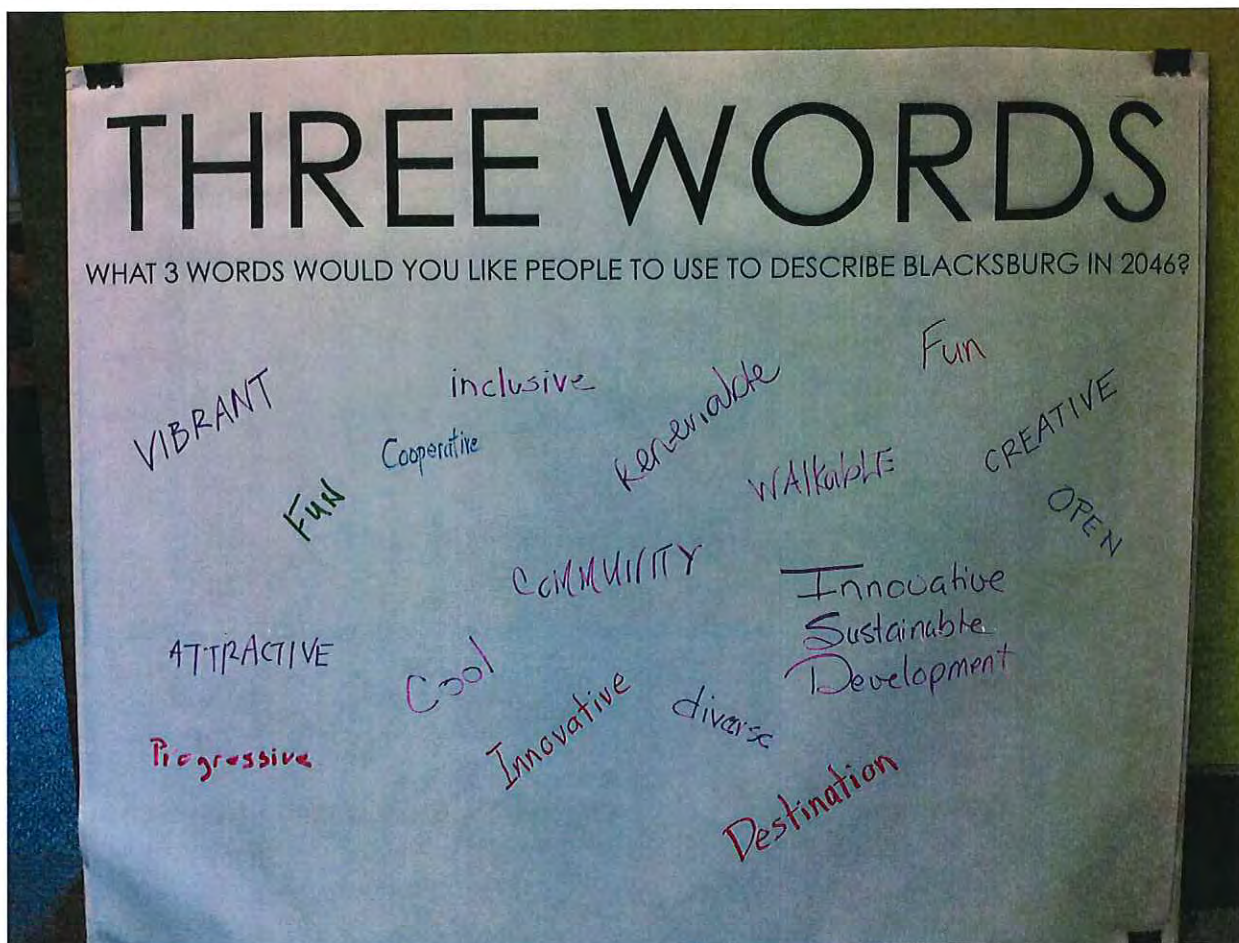 THREE WORDS
WHAT 3 WORDS WOULD YOU LIKE PEOPLE TO USE TO DESCRIBE BLACKSBURG IN 2046?
Fun
inclusive
VIBRANT
Cooperative
WALkabLE
CREATIVE
FUN
OPEN
COMMUNITY
Innovative
Sustainable
Development
ATTRACTIVE
Cool
Innovative
diverse
Progressive
Destination